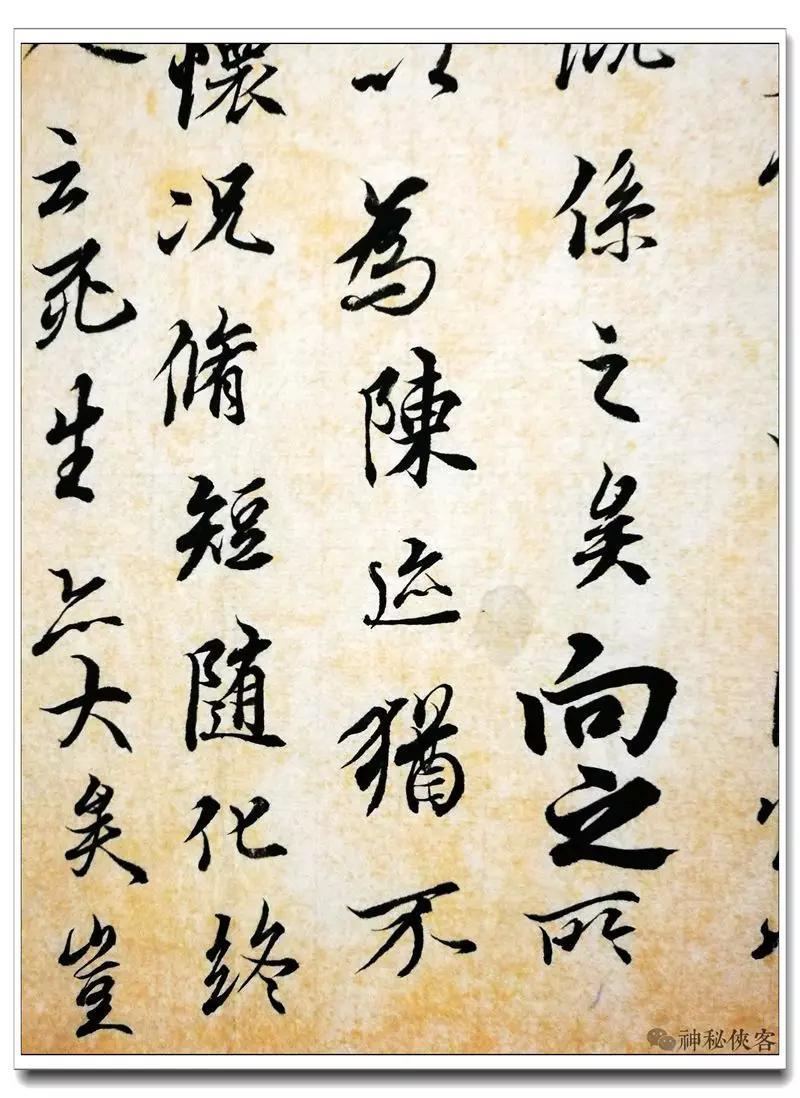 慨係之矣向之所
以為陳迹猶不
懷況脩短隨化終
云死生亦大矣豈
神秘俠客